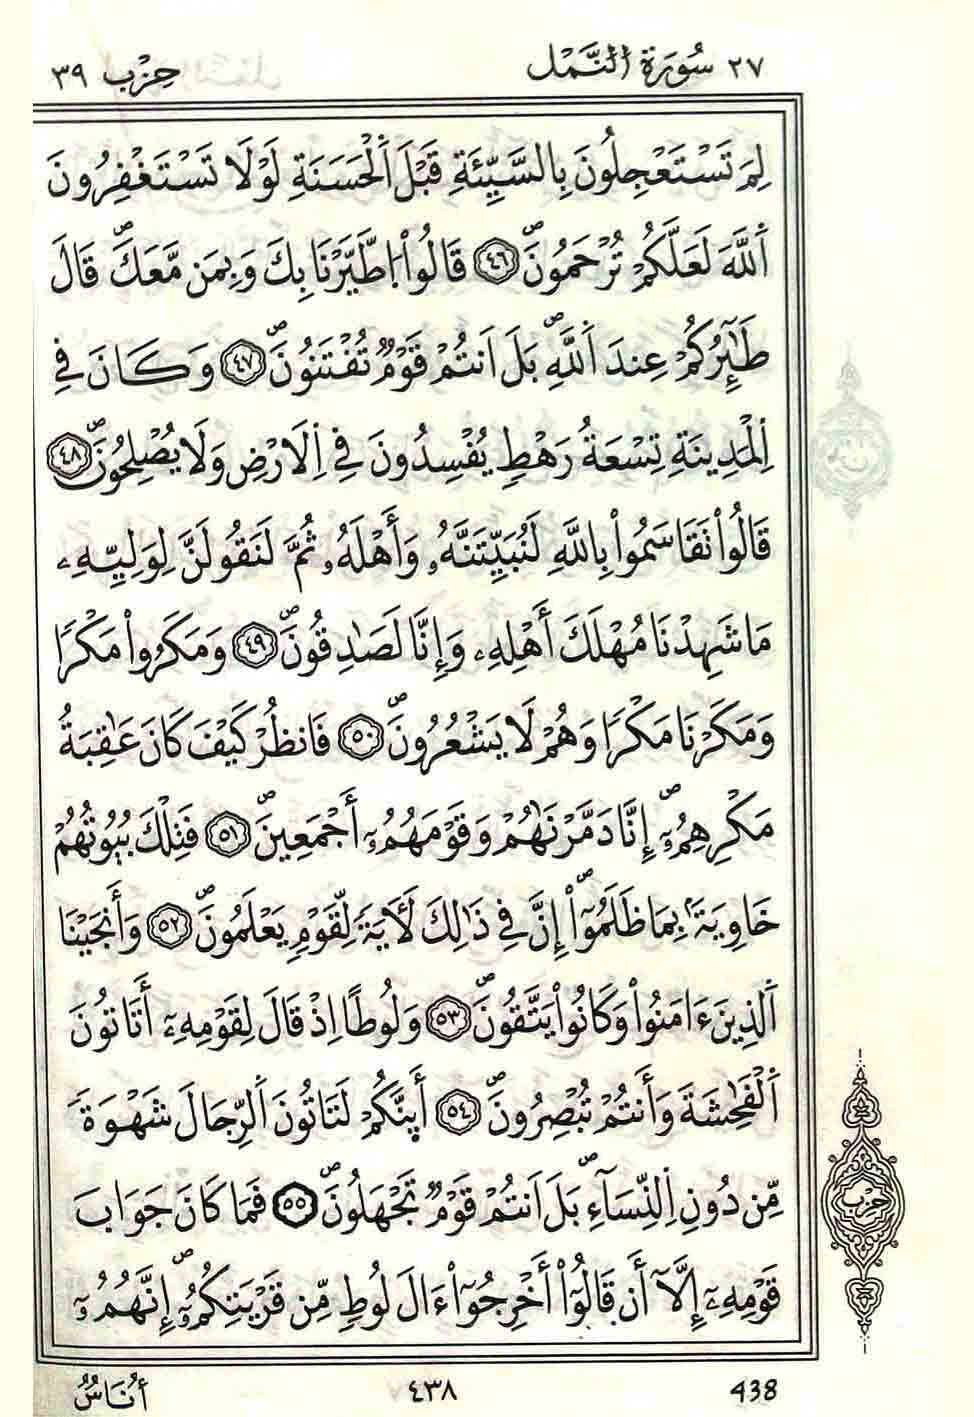 ٢٧ سُورَةُ النَّمْل حِزْب ٣٩
لِمَ تَسْتَعْجِلُونَ بِالسَّيِّئَةِ قَبْلَ اَ۬لْحَسَنَةِ لَوْلَا تَسْتَغْفِرُونَ
اَ۬للَّهَ لَعَلَّكُمْ تُرْحَمُونَۖ ٤٦ قَالُواْ اُ۪طَّيَّرْنَا بِكَ وَبِمَن مَّعَكَۖ قَالَ
طَٰٓئِرُكُمْ عِندَ اَ۬للَّهِۖ بَلَ اَنتُمْ قَوْمٞ تُفْتَنُونَۖ ٤٧ وَكَانَ فِي
اِ۬لْمَدِينَةِ تِسْعَةُ رَهْطٖ يُفْسِدُونَ فِي اِ۬لَارْضِ وَلَا يُصْلِحُونَۖ ٤٨
قَالُواْ تَقَاسَمُواْ بِاللَّهِ لَنُبَيِّتَنَّهُۥ وَأَهْلَهُۥ ثُمَّ لَنَقُولَنَّ لِوَلِيِّهِۦ
مَا شَهِدْنَا مُهْلَكَ أَهْلِهِۦ وَإِنَّا لَصَٰدِقُونَۖ ٤٩ وَمَكَرُواْ مَكْراٗ
وَمَكَرْنَا مَكْراٗ وَهُمْ لَا يَشْعُرُونَۖ ٥٠ فَانظُرْ كَيْفَ كَانَ عَٰقِبَةُ
مَكْرِهِمُۥٓۖ إِنَّا دَمَّرْنَٰهُمْ وَقَوْمَهُمُۥٓ أَجْمَعِينَۖ ٥١ فَتِلْكَ بُيُوتُهُمْ
خَاوِيَةَۢ بِمَا ظَلَمُوٓاْۖ إِنَّ فِي ذَٰلِكَ لَأٓيَةٗ لِّقَوْمٖ يَعْلَمُونَۖ ٥٢ وَأَنجَيْنَا
اَ۬لذِينَ ءَامَنُواْ وَكَانُواْ يَتَّقُونَۖ ٥٣ وَلُوطاً اِذْ قَالَ لِقَوْمِهِۦٓ أَتَاتُونَ
اَ۬لْفَٰحِشَةَ وَأَنتُمْ تُبْصِرُونَۖ ٥٤ أَئِنَّكُمْ لَتَاتُونَ اَ۬لرِّجَالَ شَهْوَةٗ
مِّن دُونِ اِ۬لنِّسَآءِۖ بَلَ اَنتُمْ قَوْمٞ تَجْهَلُونَۖ ٥٥ فَمَا كَانَ جَوَابَ
حِزْب
قَوْمِهِۦٓ إِلَّآ أَن قَالُوٓاْ أَخْرِجُوٓاْ ءَالَ لُوطٖ مِّن قَرْيَتِكُمُۥٓۖ إِنَّهُمُۥٓ
438 ٤٣٨ أُنَاسٞ